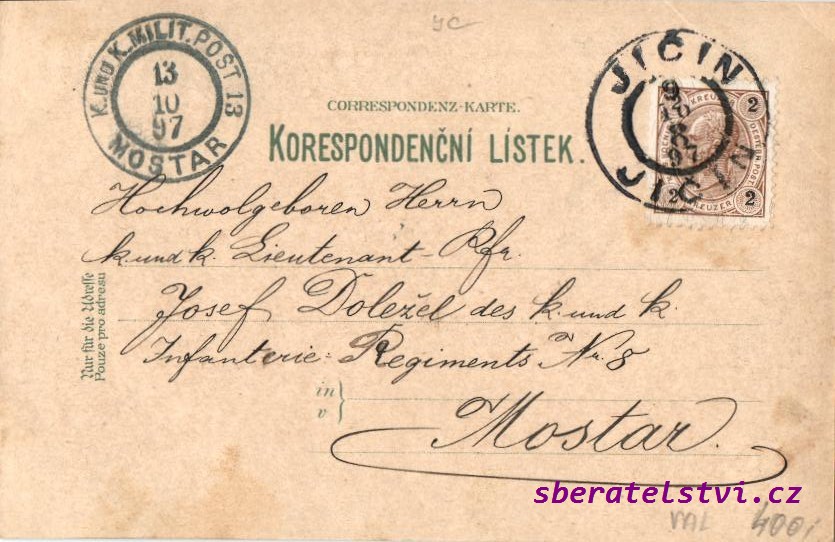 K. UND K. MILIT. POST 13
13
10
97
MOSTAR
JIČIN
9
10
97
JIČIN
2 KREUZER 2
2 KREUZER 2
OESTERR. POST
CORRESPONDENZ-KARTE.
KORESPONDENČNÍ LÍSTEK.
Hochwolgeboren Herrn
k. und k. Lieutenant-Rfr.
Josef Doležel des k. und k.
Infanterie-Regiments Nr. 8
in
v
Mostar.
Nur für die Adresse
Pouze pro adresu
sberatelstvi.cz
400